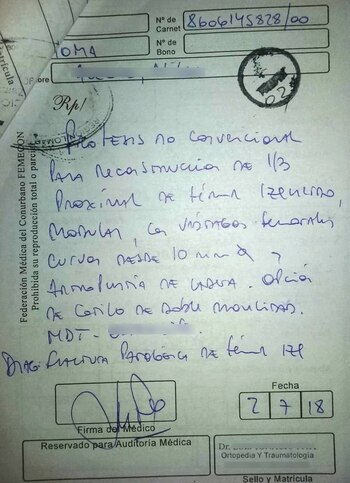 Nº de Carnet 8606145828/00
IOMA
Nº de Bono
Rp/
Federación Médica del Conurbano FEMECON
Prohibida su reproducción total o parcial
Protesis no convencional
para reconstruccion de 1/3
proximal de fémur izquierdo,
modular, con vástagos femorales
curvos desde 10 mm ø y
Artroplastia de cadera. Opción
de cotilo de doble movilidad.
MDT-
Diag: Fractura Patológica de fémur izq
Fecha
2 7 18
Firma de Médico
Reservado para Auditoría Médica
Dr.
Ortopedia y Traumatología
Sello y Matrícula